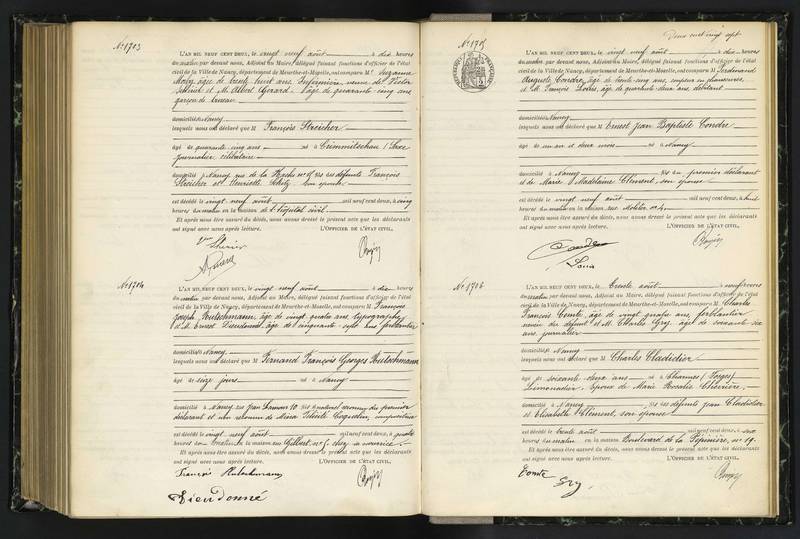 No 1703
L'AN MIL NEUF CENT DEUX, le vingt neuf août à dix heures
du matin par devant nous, Adjoint au Maire, délégué faisant fonctions d'officier de l'état
civil de la Ville de Nancy, département de Meurthe-et-Moselle, ont comparu M Suzanne
âgée de trente huit ans, Infirmière, veuve de Victor
et M Albert Gérard, âgé de quarante cinq ans
garçon de bureau
domiciliés Nancy
lesquels nous ont déclaré que M François Streicher
âgé de quarante cinq ans né à Grimmitschau (Saxe
journalier célibataire
domicilié à Nancy, rue de la Hache no fils des défunts François
Streicher et Henriette son épouse
est décédé le vingt neuf août mil neuf cent deux, à cinq
heures du matin en la maison de l'hôpital civil
Et après nous être assuré du décès, nous avons dressé le présent acte que les déclarants
ont signé avec nous après lecture. L'OFFICIER DE L'ÉTAT CIVIL,
No 1704
L'AN MIL NEUF CENT DEUX, le vingt neuf août à dix heures
du matin par devant nous, Adjoint au Maire, délégué faisant fonctions d'officier de l'état
civil de la Ville de Nancy, département de Meurthe-et-Moselle, ont comparu M François
Joseph Rutschmann, âgé de vingt quatre ans, typographe
et M. Ernest Dieudonné, âgé de cinquante sept ans ferblantier
domiciliés Nancy
lesquels nous ont déclaré que M Fernand François Georges Rutschmann
âgé de seize jours né à Nancy
domicilié à Nancy, rue Jean Lamour 10 fils naturel reconnu du premier
déclarant et non reconnu de Maria Félicité Coquelin,
est décédé le vingt neuf août mil neuf cent deux, à quatre
heures du matin en la maison rue Gilbert, no 5, chez sa nourrice
Et après nous être assuré du décès, nous avons dressé le présent acte que les déclarants
ont signé avec nous après lecture. L'OFFICIER DE L'ÉTAT CIVIL,
François Rutschmann
Dieudonné
Deux cent vingt sept
No 1705
RÉPUBLIQUE FRANÇAISE
L'AN MIL NEUF CENT DEUX, le vingt neuf août à dix heures
du matin par devant nous, Adjoint au Maire, délégué faisant fonctions d'officier de l'état
civil de la Ville de Nancy, département de Meurthe-et-Moselle, ont comparu M Ferdinand
Auguste Condre, âgé de trente cinq ans, coupeur en chaussures
et M. François Louis, âgé de quarante deux ans, débitant
domiciliés Nancy
lesquels nous ont déclaré que M Ernest Jean Baptiste Condre
âgé de un an et deux mois né à Nancy
domicilié à Nancy fils du premier déclarant
et de Marie Madelaine Clément, son épouse
est décédé le vingt neuf août mil neuf cent deux, à huit
heures du matin en la maison rue Molitor no 4
Et après nous être assuré du décès, nous avons dressé le présent acte que les déclarants
ont signé avec nous après lecture. L'OFFICIER DE L'ÉTAT CIVIL,
Condre
Louis
No 1706
L'AN MIL NEUF CENT DEUX, le trente août à neuf heures
du matin par devant nous, Adjoint au Maire, délégué faisant fonctions d'officier de l'état
civil de la Ville de Nancy, département de Meurthe-et-Moselle, ont comparu M Charles
François Comte, âgé de vingt quatre ans, ferblantier
neveu du défunt et M. Charles Gry, âgé de soixante dix
ans, journalier
domiciliés Nancy
lesquels nous ont déclaré que M Charles Cladidier
âgé de soixante deux ans né à Charmes (Vosges)
Limonadier, époux de Marie Rosalie
domicilié à Nancy fils des défunts Jean Cladidier
et Elisabeth Clément, son épouse
est décédé le trente août mil neuf cent deux, à six
heures du matin en la maison Boulevard de la Pépinière, no 19
Et après nous être assuré du décès, nous avons dressé le présent acte que les déclarants
ont signé avec nous après lecture. L'OFFICIER DE L'ÉTAT CIVIL,
Comte
Gry